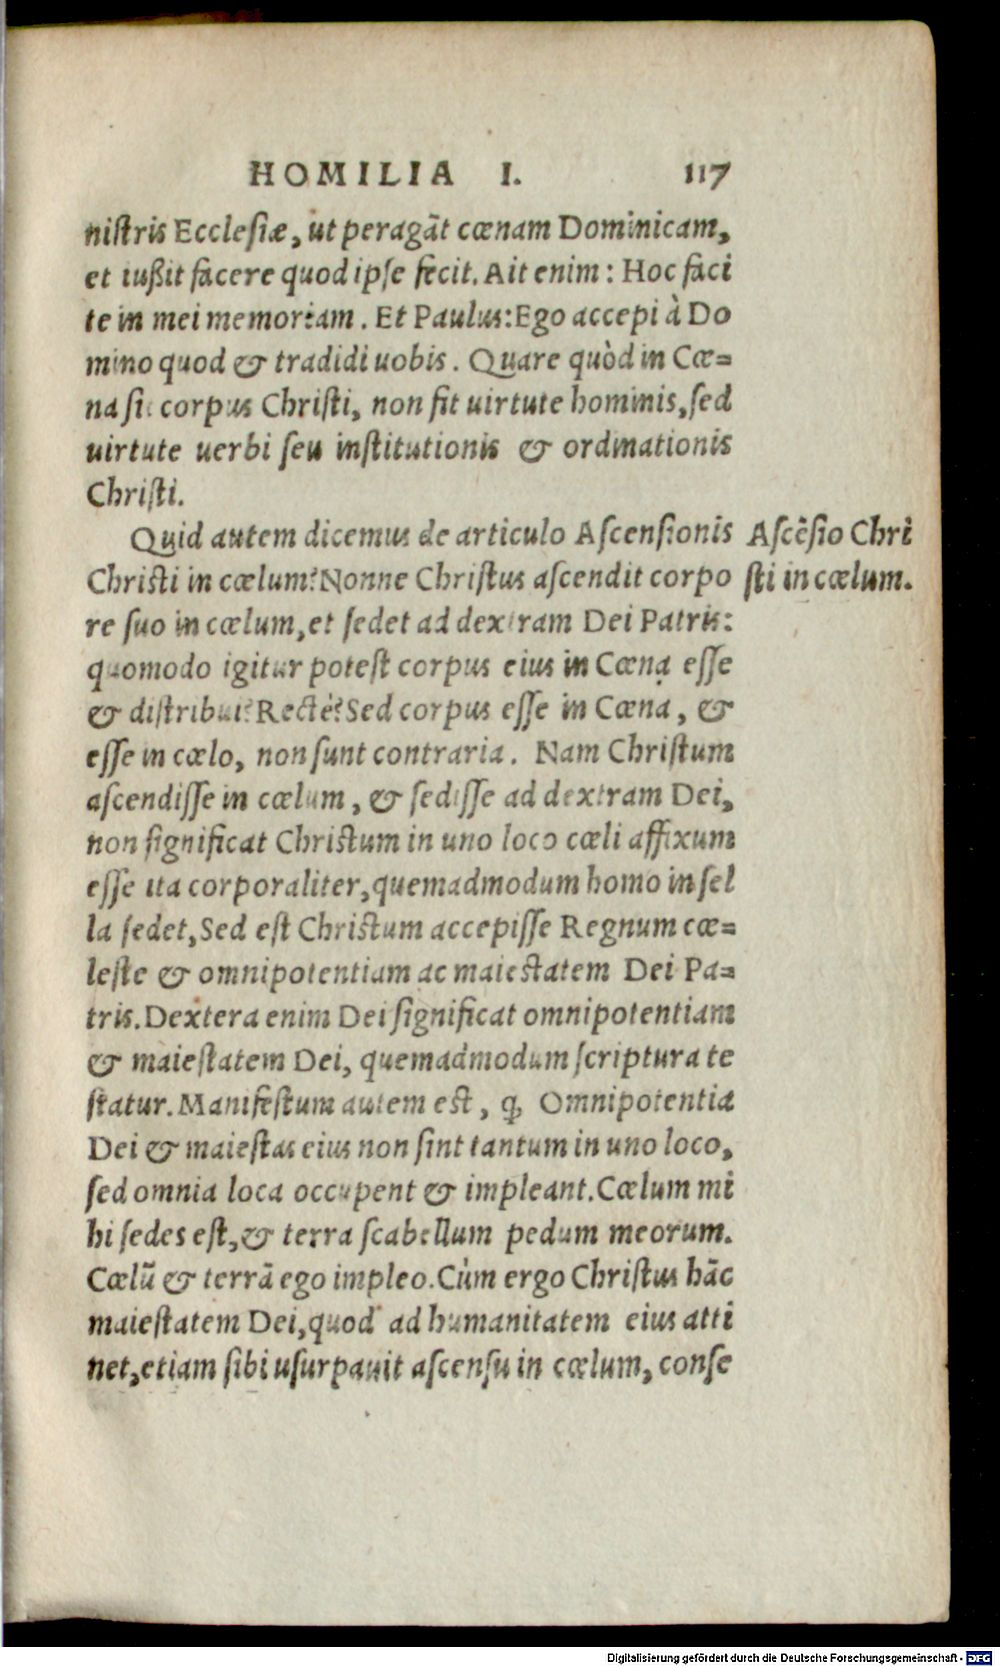 HOMILIA I. 117
nistris Ecclesiæ, ut peragāt cœnam Dominicam,
et iußit facere quod ipse fecit. Ait enim: Hoc faci
te in mei memoriam. Et Paulus: Ego accepi à Do
mino quod & tradidi uobis. Quare quòd in Cœ=
na sit corpus Christi, non fit uirtute hominis, sed
uirtute uerbi seu institutionis & ordinationis
Christi.
Quid autem dicemus de articulo Ascensionis
Ascēsio Chri
Christi in cœlum? Nonne Christus ascendit corpo
sti in cœlum.
re suo in cœlum, et sedet ad dextram Dei Patris:
quomodo igitur potest corpus eius in Cœna esse
& distribui? Rectè? Sed corpus esse in Cœna, &
esse in cœlo, non sunt contraria. Nam Christum
ascendisse in cœlum, & sedisse ad dextram Dei,
non significat Christum in uno loco cœli affixum
esse ita corporaliter, quemadmodum homo in sel
la sedet, Sed est Christum accepisse Regnum cœ=
leste & omnipotentiam ac maiestatem Dei Pa=
tris. Dextera enim Dei significat omnipotentiam
& maiestatem Dei, quemadmodum scriptura te
statur. Manifestum autem est, ꝙ Omnipotentia
Dei & maiestas eius non sint tantum in uno loco,
sed omnia loca occupent & impleant. Cœlum mi
hi sedes est, & terra scabellum pedum meorum.
Cœlū & terrā ego impleo. Cùm ergo Christus hāc
maiestatem Dei, quod ad humanitatem eius atti
net, etiam sibi usurpauit ascensu in cœlum, conse
Digitalisierung gefördert durch die Deutsche Forschungsgemeinschaft - DFG